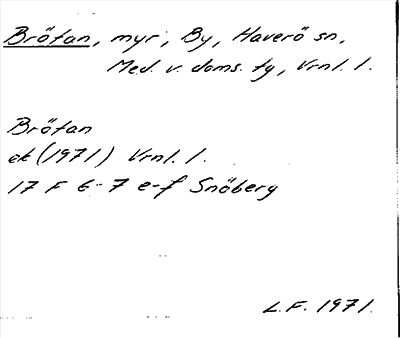 Brötan, myr, By, Haverö sn,
Med. v. doms. tg, Vrnl. l.
Brötan
ek (1971) Vrnl. l.
17 F 6-7 e-f Snöberg
L.F. 1971.